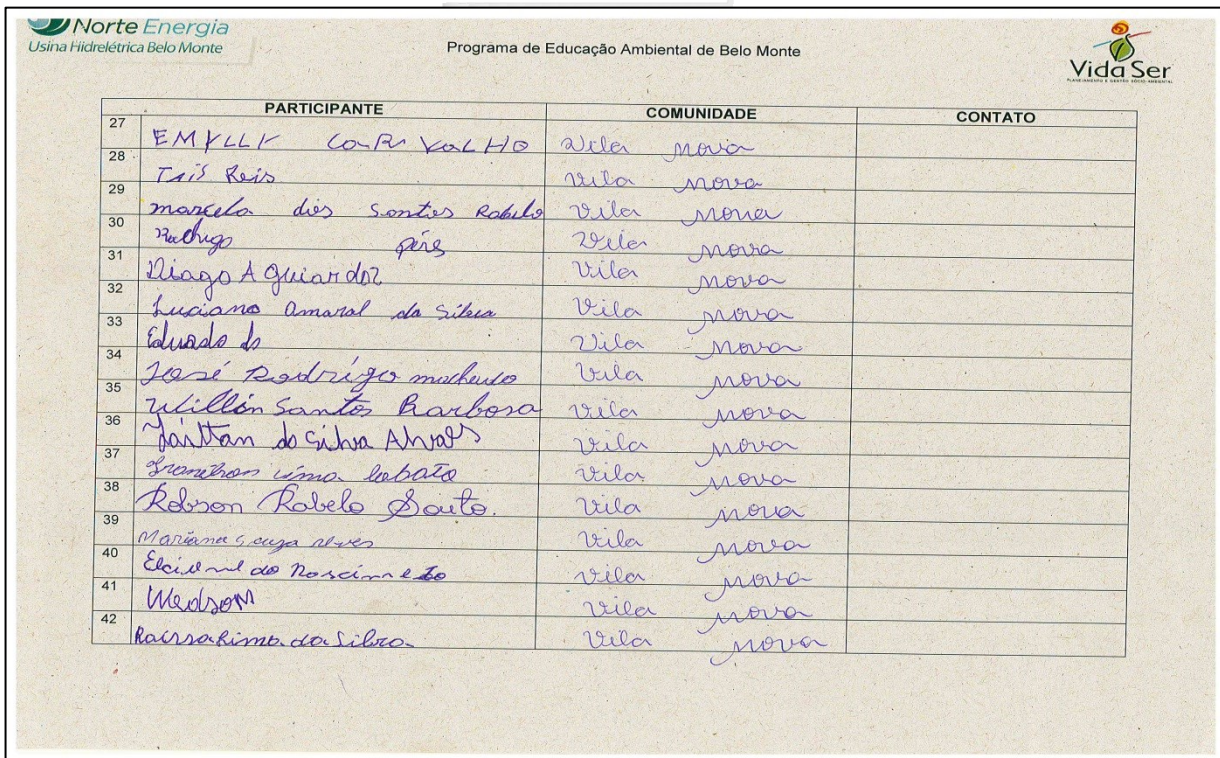 Norte Energia
Usina Hidrelétrica Belo Monte
Programa de Educação Ambiental de Belo Monte
Vida Ser
PLANEJAMENTO E GESTÃO SÓCIO-AMBIENTAL
PARTICIPANTE COMUNIDADE CONTATO
27 EMYLLY CaRvaLHO Vila nova
28 Taís Reis Vila nova
29 marcela dos Santos Rabelo Vila nova
30 Rodrigo Vila nova
31 Diago A Vila nova
32 Luciano amaral da Silva Vila nova
33 Eduardo do Vila nova
34 José Rodrigo Vila nova
35 Willon Santos Barbosa Vila nova
36 da Silva Alvaes Vila nova
37 lima lobato Vila nova
38 Robson Rabelo Souto. Vila nova
39 Mariana souza neves Vila nova
40 do Vila nova
41 Wedson Vila nova
42 Raissa Lima da Silva Vila nova